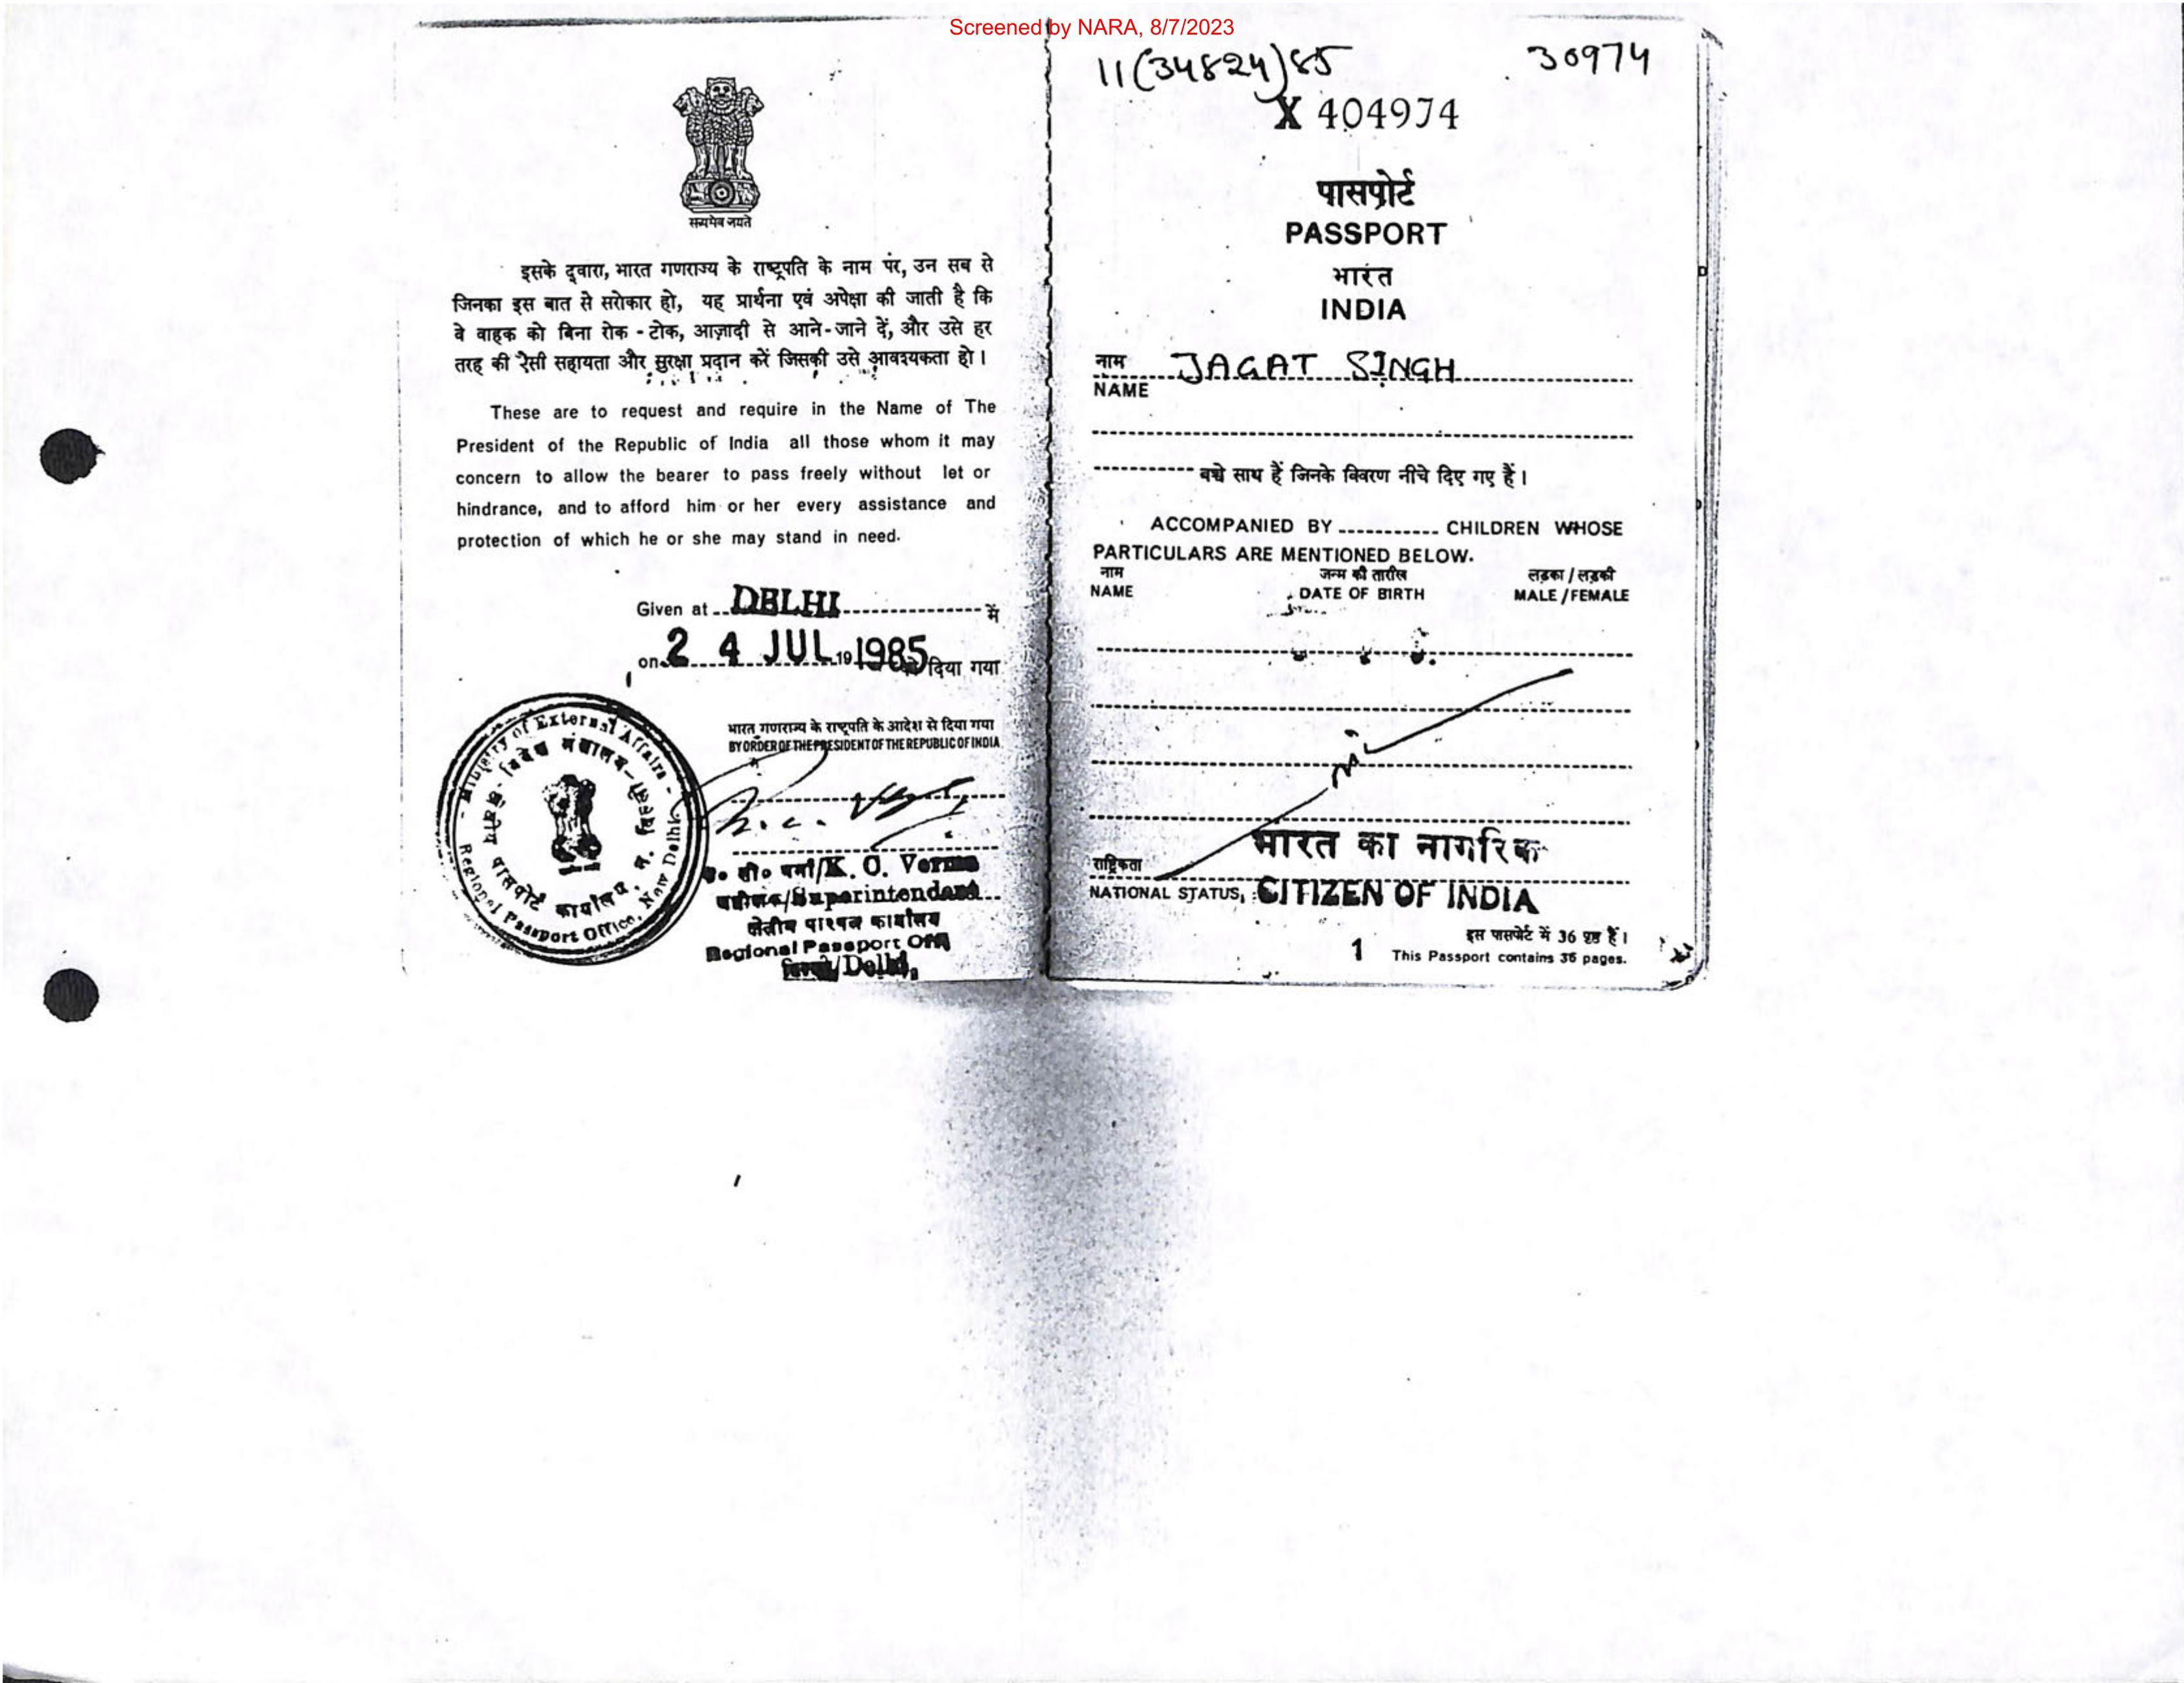 Screened by NARA, 8/7/2023
सत्यमेव जयते
इसके द्वारा, भारत गणराज्य के राष्ट्रपति के नाम पर, उन सब से
जिनका इस बात से सरोकार हो, यह प्रार्थना एवं अपेक्षा की जाती है कि
वे वाहक को बिना रोक - टोक, आज़ादी से आने-जाने दें, और उसे हर
तरह की ऐसी सहायता और सुरक्षा प्रदान करें जिसकी उसे आवश्यकता हो।
These are to request and require in the Name of The
President of the Republic of India all those whom it may
concern to allow the bearer to pass freely without let or
hindrance, and to afford him or her every assistance and
protection of which he or she may stand in need.
Given at DELHI में
on 24 JUL 19 1985 को दिया गया
भारत गणराज्य के राष्ट्रपति के आदेश से दिया गया
BY ORDER OF THE PRESIDENT OF THE REPUBLIC OF INDIA
Ministry of External Affairs -
विदेश मंत्रालय-
क्षेत्रीय पासपोर्ट कार्यालय, न. दिल्ली
Regional Passport Office, New Delhi
सी० वर्मा/K. C. Verma
अधीक्षक/Superintendent
क्षेत्रीय पारपत्र कार्यालय
Regional Passport Office
/Delhi,
11(34824)85
30974
X 404974
पासपोर्ट
PASSPORT
भारत
INDIA
नाम JAGAT SINGH
NAME
बच्चे साथ हैं जिनके विवरण नीचे दिए गए हैं।
ACCOMPANIED BY CHILDREN WHOSE
PARTICULARS ARE MENTIONED BELOW.
नाम जन्म की तारीख लड़का / लड़की
NAME DATE OF BIRTH MALE / FEMALE
Nil
राष्ट्रिकता भारत का नागरिक
NATIONAL STATUS, CITIZEN OF INDIA
इस पासपोर्ट में 36 पृष्ठ हैं।
1 This Passport contains 36 pages.